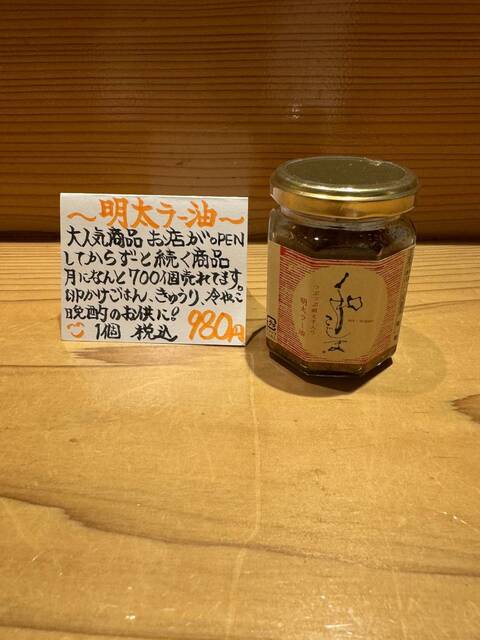 ～明太ラー油～
大人気商品 お店がOPEN
してからずと続く商品
月になんと700個売れてます。
卵かけごはん、きゅうり、冷やっこ
晩酌のお供に!
1個 税込 980円
つぶつぶ明太子入り
明太ラー油